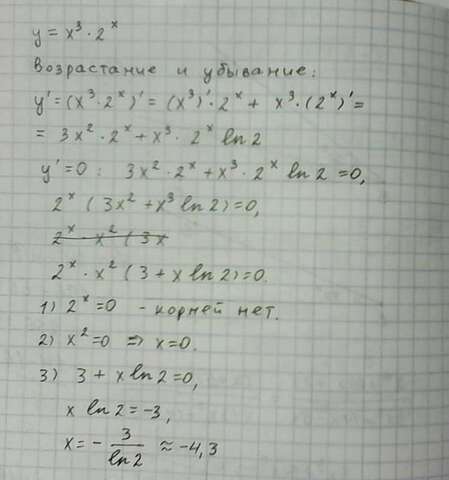 y = x³ · 2ˣ
Возрастание и убывание:
y' = (x³ · 2ˣ)' = (x³)' · 2ˣ + x³ · (2ˣ)' =
= 3x² · 2ˣ + x³ · 2ˣ ln 2
y' = 0 : 3x² · 2ˣ + x³ · 2ˣ ln 2 = 0,
2ˣ (3x² + x³ ln 2) = 0,
2ˣ · x² (3x
2ˣ · x² (3 + x ln 2) = 0.
1) 2ˣ = 0 - корней нет.
2) x² = 0 => x = 0.
3) 3 + x ln 2 = 0,
x ln 2 = -3,
x = - 3/ln 2 ≈ -4,3